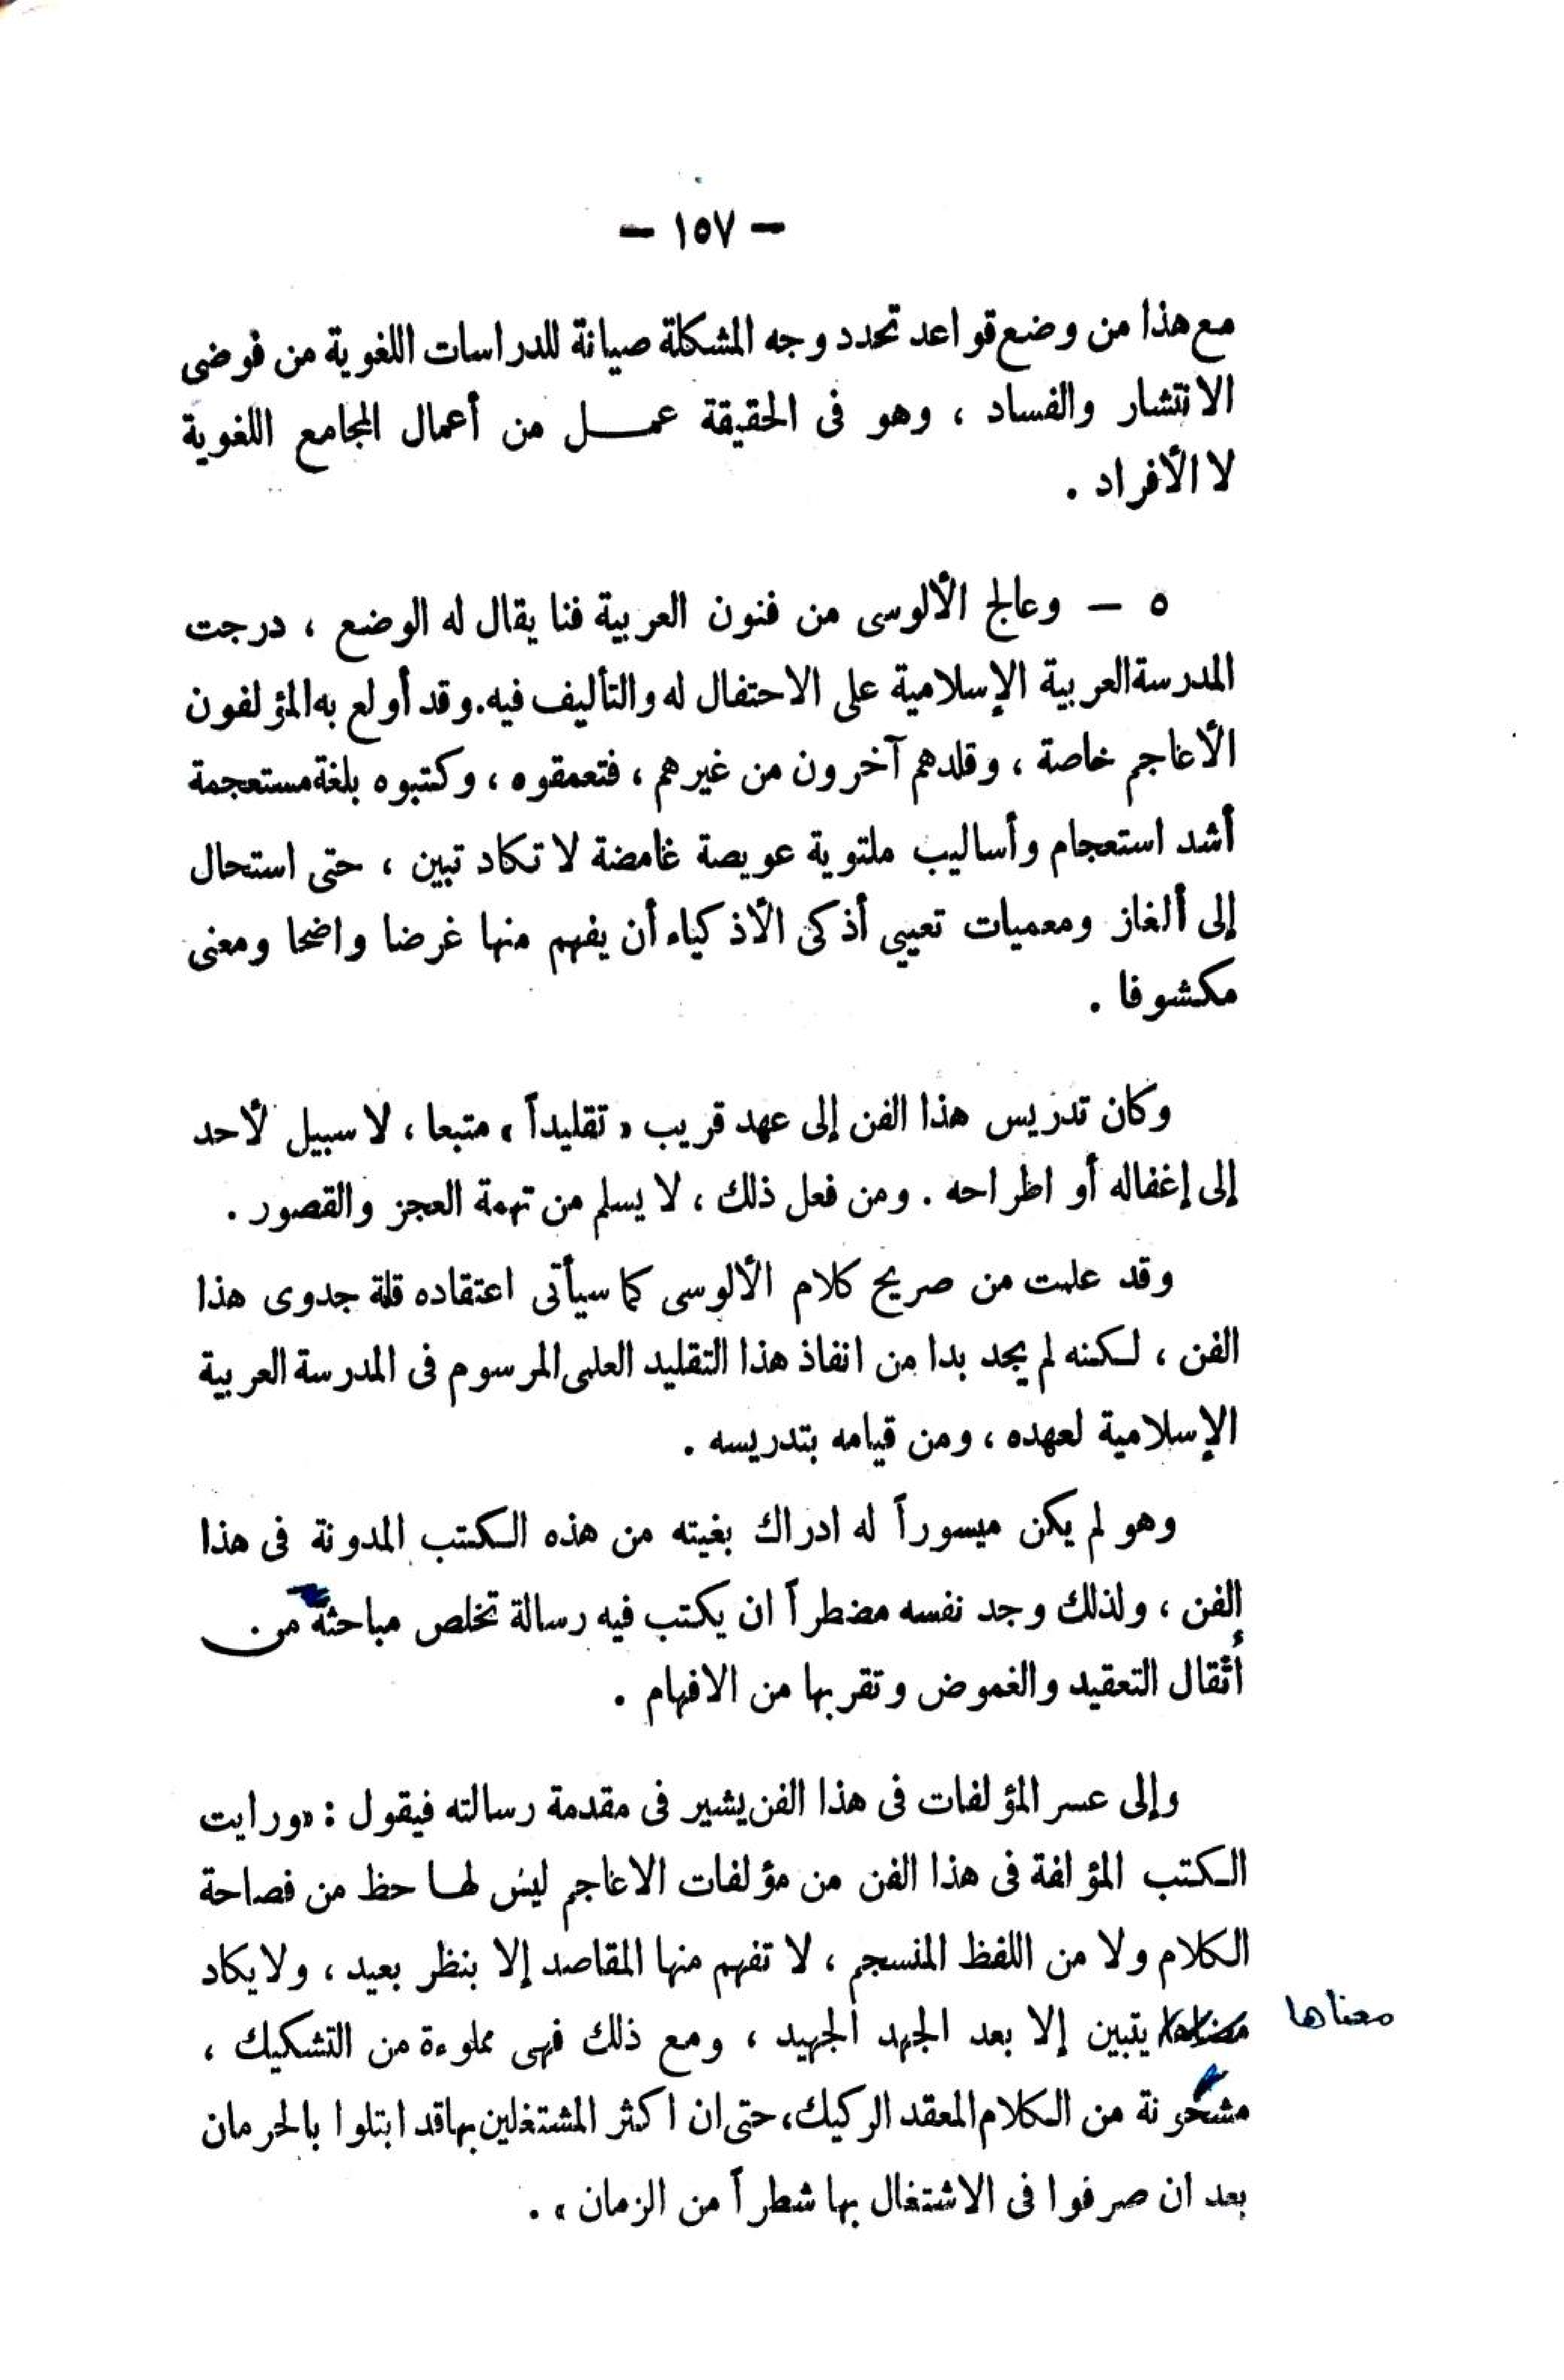 — ١٥٧ —
مع هذا من وضع قواعد تحدد وجه المشكلة صيانة للدراسات اللغوية من فوضى
الانتشار والفساد ، وهو فى الحقيقة عمــل من أعمال المجامع اللغوية
لا الأفراد .
٥ — وعالج الألوسى من فنون العربية فنا يقال له الوضع ، درجت
المدرسة العربية الإسلامية على الاحتفال له والتأليف فيه. وقد أولع به المؤلفون
الأعاجم خاصة ، وقلدهم آخرون من غيرهم ، فتعمقوه ، وكتبوه بلغة مستعجمة
أشد استعجام وأساليب ملتوية عويصة غامضة لا تكاد تبين ، حتى استحال
إلى ألغاز ومعميات تعيي أذكى الأذكياء أن يفهم منها غرضا واضحا ومعنى
مكشوفا .
وكان تدريس هذا الفن إلى عهد قريب « تقليداً » متبعا ، لا سبيل لأحد
إلى إغفاله أو اطراحه . ومن فعل ذلك ، لا يسلم من تهمة العجز والقصور .
وقد علمت من صريح كلام الألوسى كما سيأتى اعتقاده قلة جدوى هذا
الفن ، لكنه لم يجد بدا من انفاذ هذا التقليد العلمى المرسوم فى المدرسة العربية
الإسلامية لعهده ، ومن قيامه بتدريسه .
وهو لم يكن ميسوراً له ادراك بغيته من هذه الكتب المدونة فى هذا
الفن ، ولذلك وجد نفسه مضطراً ان يكتب فيه رسالة تخلص مباحثه من
أثقال التعقيد والغموض وتقربها من الافهام .
وإلى عسر المؤلفات فى هذا الفن يشير فى مقدمة رسالته فيقول : «ورايت
الكتب المؤلفة فى هذا الفن من مؤلفات الاعاجم ليس لهـا حظ من فصاحة
الكلام ولا من اللفظ المنسجم ، لا تفهم منها المقاصد إلا بنظر بعيد ، ولا يكاد
معناها يتبين إلا بعد الجهد الجهيد ، ومع ذلك فهى مملوءة من التشكيك ،
مشحونة من الكلام المعقد الركيك، حتى ان اكثر المشتغلين بها قد ابتلوا بالحرمان
بعد ان صرفوا فى الاشتغال بها شطراً من الزمان » .